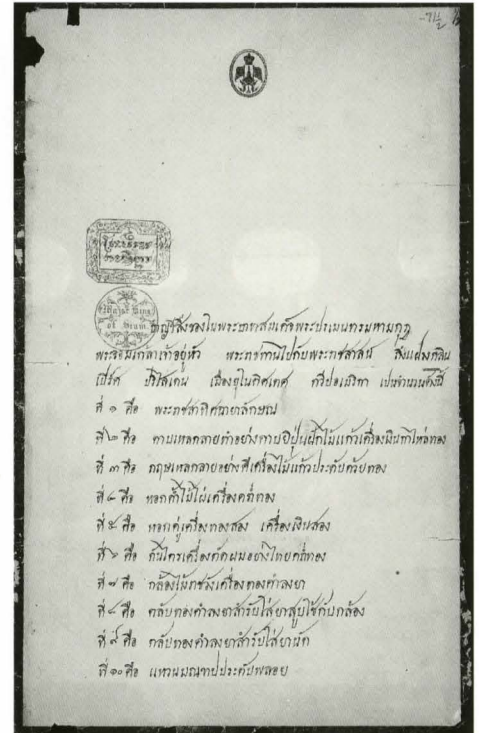 บาญชีสิ่งของในพระบาทสมเดจพระปรเมนทรมหามกุฎ
พระจอมเกล้าเจ้าอยู่หัว พระราชทานไปกับพระราชสาสน ถึงแฝรงกลิน
เปีร์ศ ปริไสเดน เมืองยุในติศเตศ ทวีปอเมริกา เปนจำนวนดังนี้
ที่ ๑ คือ พระราชสาทิศฉายาลักษณ
ที่ ๒ คือ ดาบเหลกลายทำอย่างดาบยี่ปุ่นฝักไม้แก้วเครื่องเงินกาไหล่ทอง
ที่ ๓ คือ กฤษเหลกลายอย่างดีเครื่องไม้แก้วประดับด้วยทอง
ที่ ๔ คือ หอกด้ำไม้ไผ่เครื่องคร่ำทอง
ที่ ๕ คือ หอกคู่เครื่องทองสอง เครื่องเงินสอง
ที่ ๖ คือ กันไตรเครื่องตัดผมอย่างไทยคร่ำทอง
ที่ ๗ คือ กล้องไม้กะวังเครื่องทองคำลงยา
ที่ ๘ คือ ตลับทองคำลงยาสำรับใส่ยาสูบใช้กับกล้อง
ที่ ๙ คือ ตลับทองคำลงยาสำรับใส่ยานัด
ที่ ๑๐ คือ แหวนมณฑปประดับพลอย